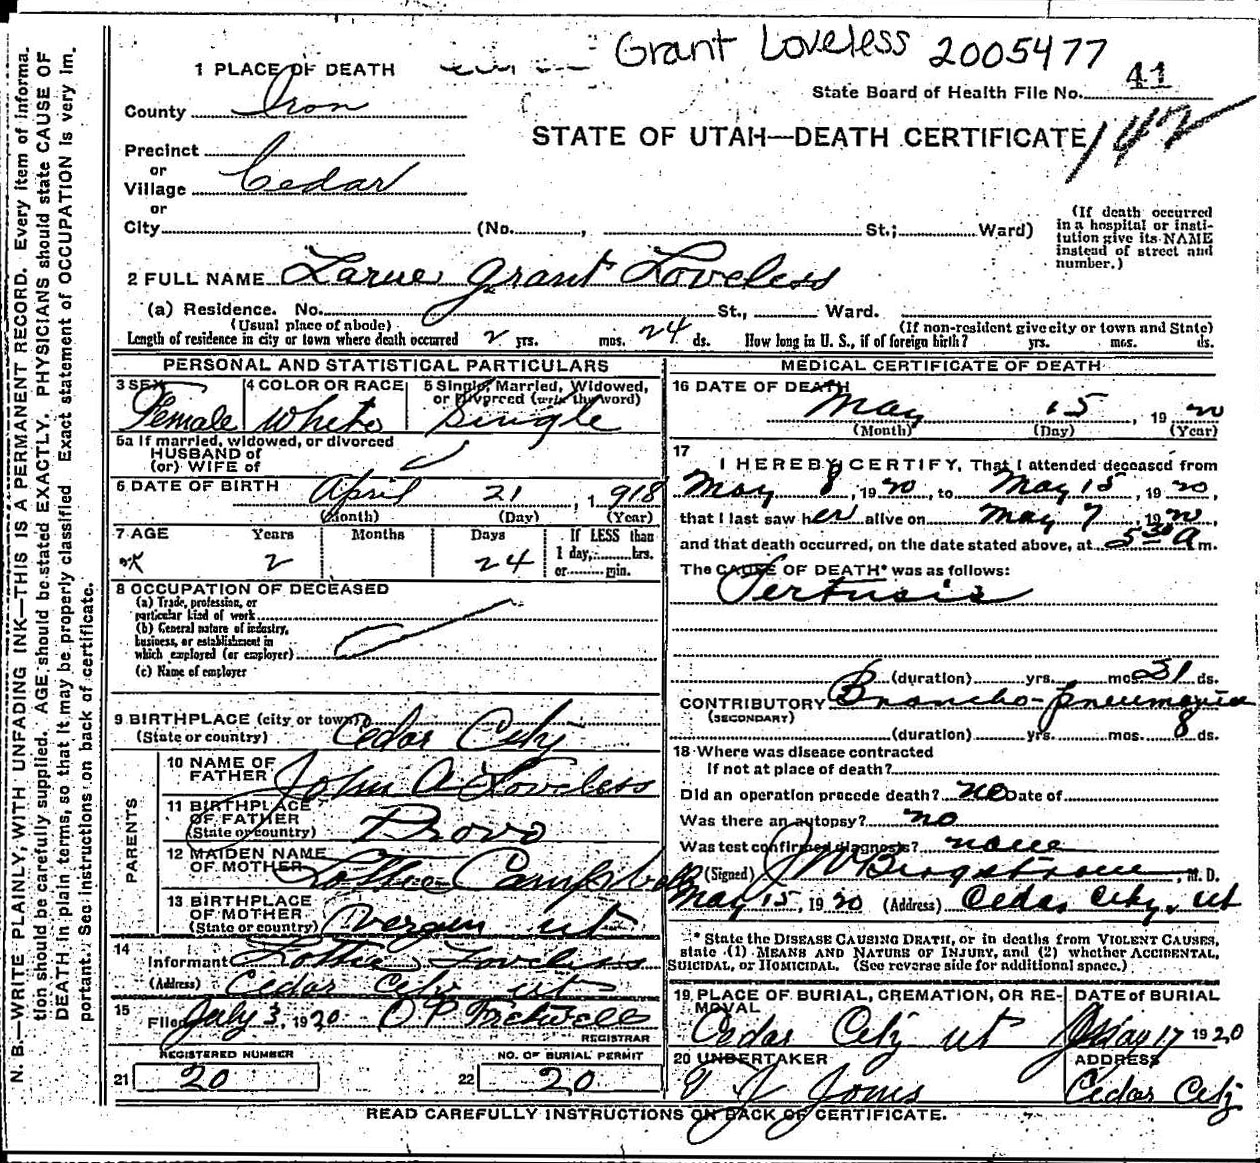 Grant Loveless 2005477
1 PLACE OF DEATH
41
State Board of Health File No.
County Iron
STATE OF UTAH—DEATH CERTIFICATE
142
Precinct
or
Village Cedar
or
City (No. , St.; Ward)
(If death occurred in a hospital or insti-
tution give its NAME
instead of street and
number.)
2 FULL NAME Larue Grant Loveless
(a) Residence. No. St., Ward.
(Usual place of abode)
(If non-resident give city or town and State)
Length of residence in city or town where death occurred 2 yrs. mos. 24 ds. How long in U. S., if of foreign birth? yrs. mos. ds.
PERSONAL AND STATISTICAL PARTICULARS
3 SEX
Female
4 COLOR OR RACE
White
5 Single, Married, Widowed,
or Divorced (write the word)
Single
5a If married, widowed, or divorced
HUSBAND of
(or) WIFE of
6 DATE OF BIRTH April 21, 1918
(Month) (Day) (Year)
7 AGE Years Months Days
2 24
If LESS than
1 day, hrs.
or min.
8 OCCUPATION OF DECEASED
(a) Trade, profession, or
particular kind of work
(b) General nature of industry,
business, or establishment in
which employed (or employer)
(c) Name of employer
9 BIRTHPLACE (city or town) Cedar City
(State or country)
PARENTS
10 NAME OF
FATHER John A Loveless
11 BIRTHPLACE
OF FATHER
(State or country) Provo
12 MAIDEN NAME
OF MOTHER Lottie Campbell
13 BIRTHPLACE
OF MOTHER
(State or country) Vergen ut
14
Informant Lottie Loveless
(Address) Cedar City ut
15
Filed July 3, 1920
REGISTRAR
REGISTERED NUMBER
21 20
NO. OF BURIAL PERMIT
22 20
MEDICAL CERTIFICATE OF DEATH
16 DATE OF DEATH
May 15 1920
(Month) (Day) (Year)
17
I HEREBY CERTIFY, That I attended deceased from
May 8, 1920, to May 15, 1920,
that I last saw her alive on May 7, 1920,
and that death occurred, on the date stated above, at 5 30 A m.
The CAUSE OF DEATH* was as follows:
Pertusis
(duration) yrs. mos. 21 ds.
CONTRIBUTORY Broncho-pneumonia
(SECONDARY)
(duration) yrs. mos. 8 ds.
18 Where was disease contracted
If not at place of death?
Did an operation precede death? no Date of
Was there an autopsy? no
Was test confirmed diagnosis? none
(Signed) J W Bergstrom, M. D.
May 15, 1920 (Address) Cedar City, ut
* State the DISEASE CAUSING DEATH, or in deaths from VIOLENT CAUSES,
state (1) MEANS AND NATURE OF INJURY, and (2) whether ACCIDENTAL,
SUICIDAL, or HOMICIDAL. (See reverse side for additional space.)
19 PLACE OF BURIAL, CREMATION, OR RE-
MOVAL
Cedar City ut
DATE of BURIAL
May 17 1920
20 UNDERTAKER
Jones
ADDRESS
Cedar City
READ CAREFULLY INSTRUCTIONS ON BACK OF CERTIFICATE.
N. B.—WRITE PLAINLY, WITH UNFADING INK—THIS IS A PERMANENT RECORD. Every item of informa-
tion should be carefully supplied. AGE should be stated EXACTLY. PHYSICIANS should state CAUSE OF
DEATH in plain terms, so that it may be properly classified. Exact statement of OCCUPATION is very im-
portant. See instructions on back of certificate.